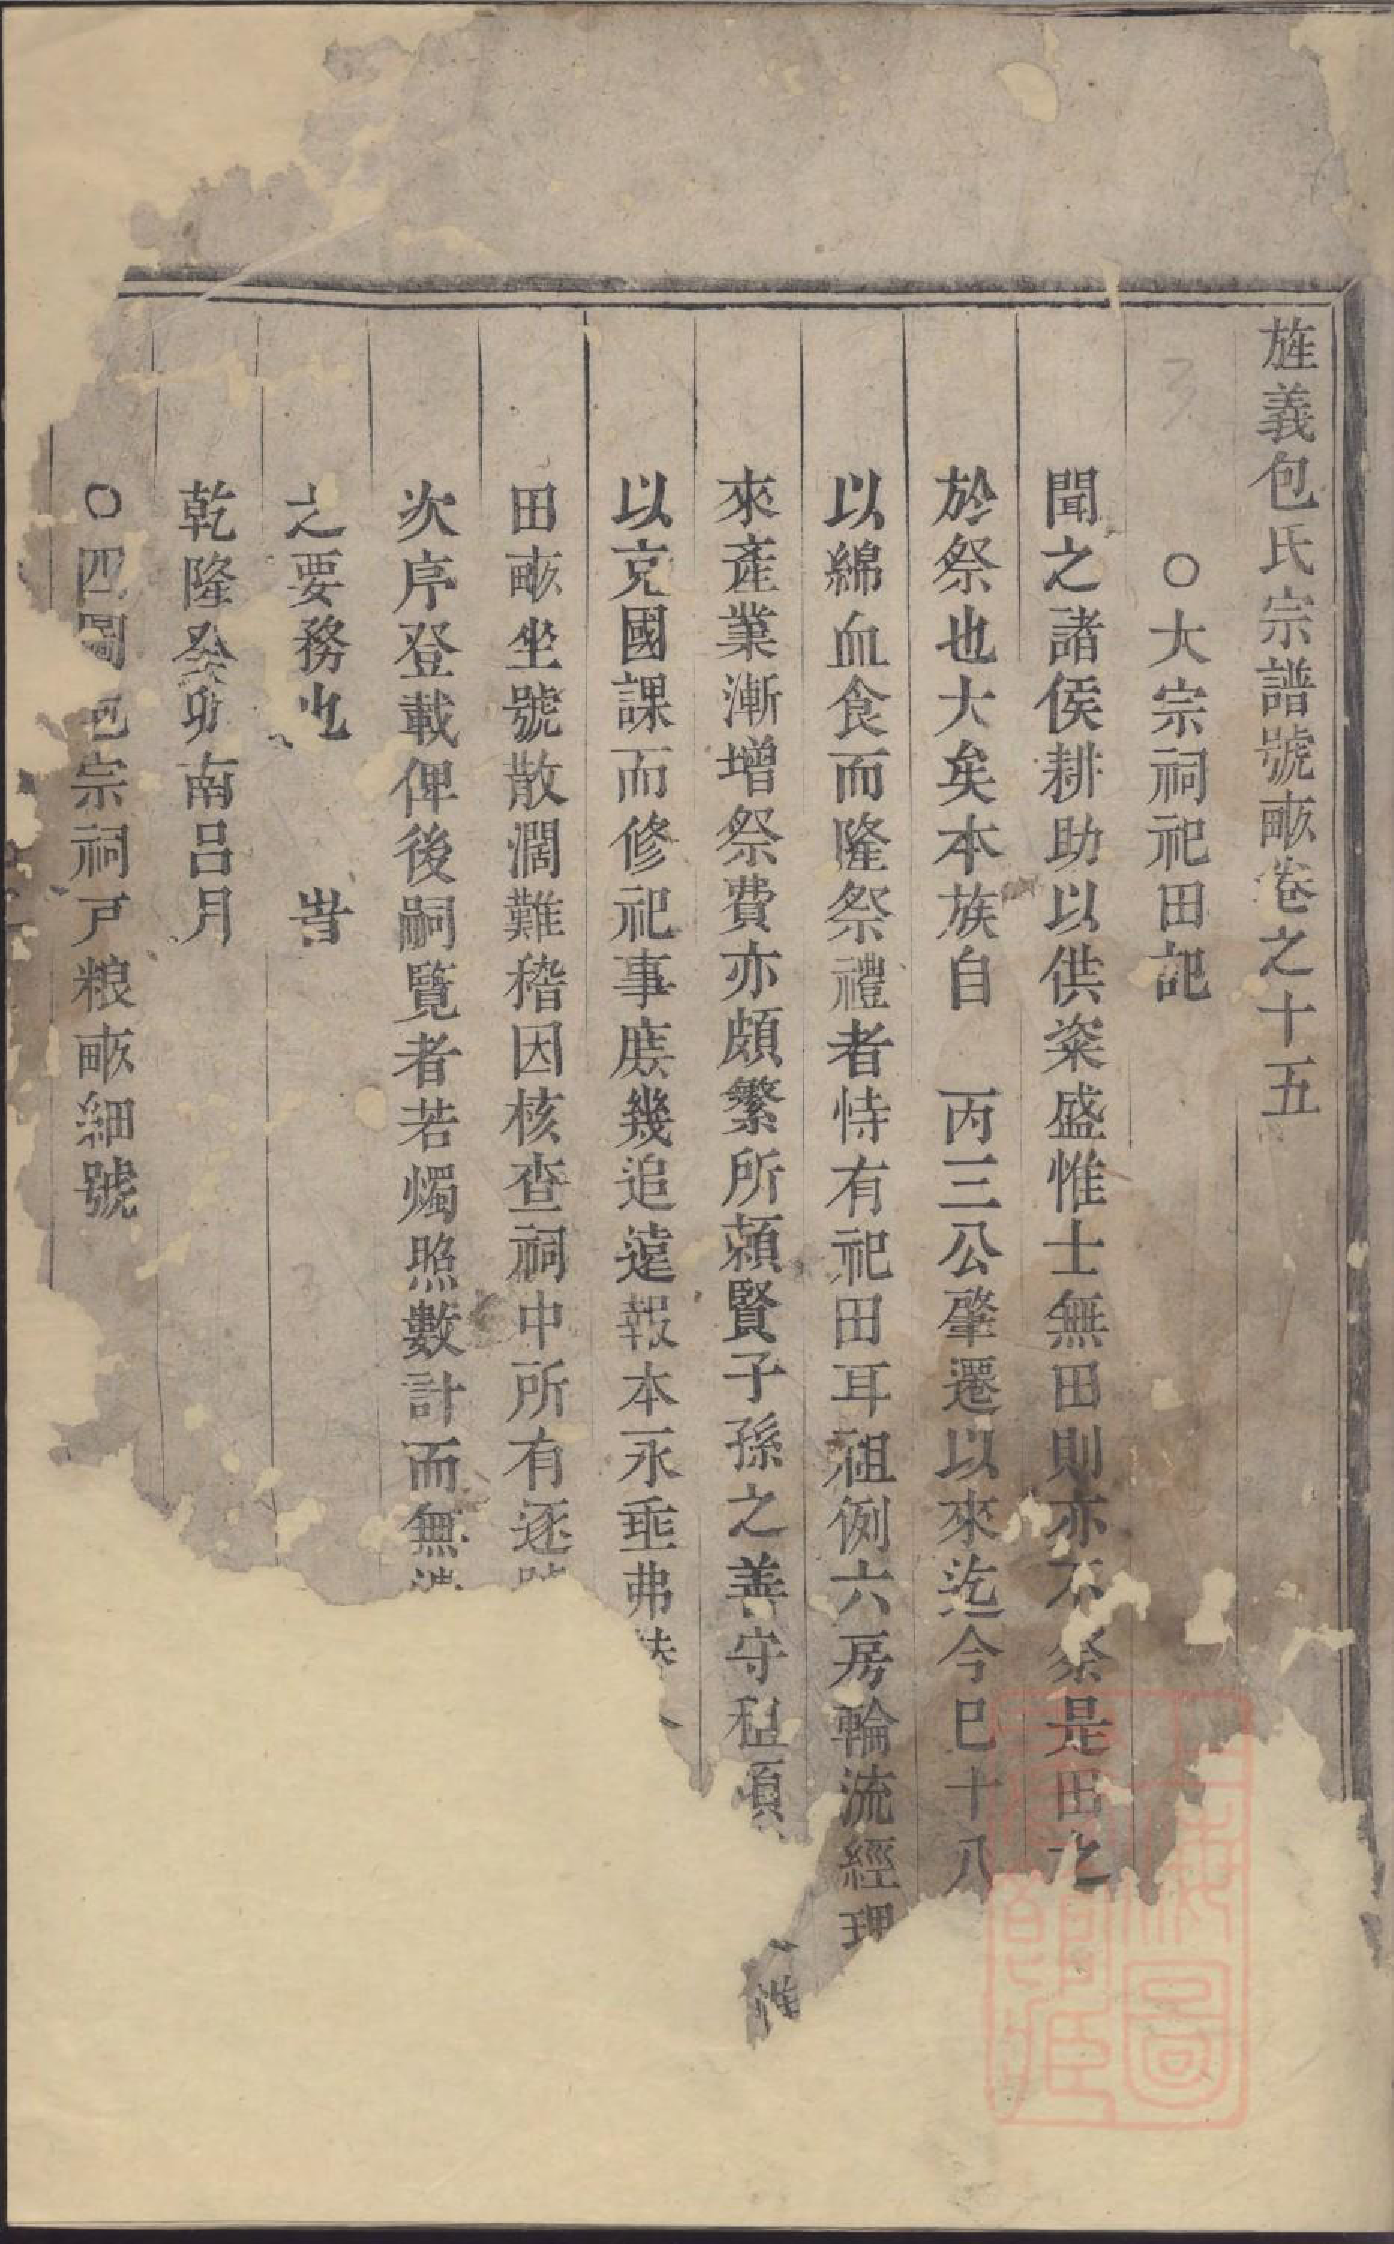 旌義包氏宗譜號畝卷之十五
○大宗祠祀田記
聞之諸侯耕助以供粢盛惟士無田則亦不祭是田之
於祭也大矣本族自 丙三公肇遷以來迄今巳十八
以綿血食而隆祭禮者恃有祀田耳祖例六房輪流經理
來産業漸增祭費亦頗繁所頼賢子孫之善守租項 惟
以克國課而修祀事庶幾追遠報本永垂弗
田畝坐號散濶難稽因核查祠中所有逐號
次序登載俾後嗣覽者若燭照數計而無
之要務也 旹
乾隆癸夘南呂月
○四圖包宗祠戸粮畝細號
上海圖書館藏